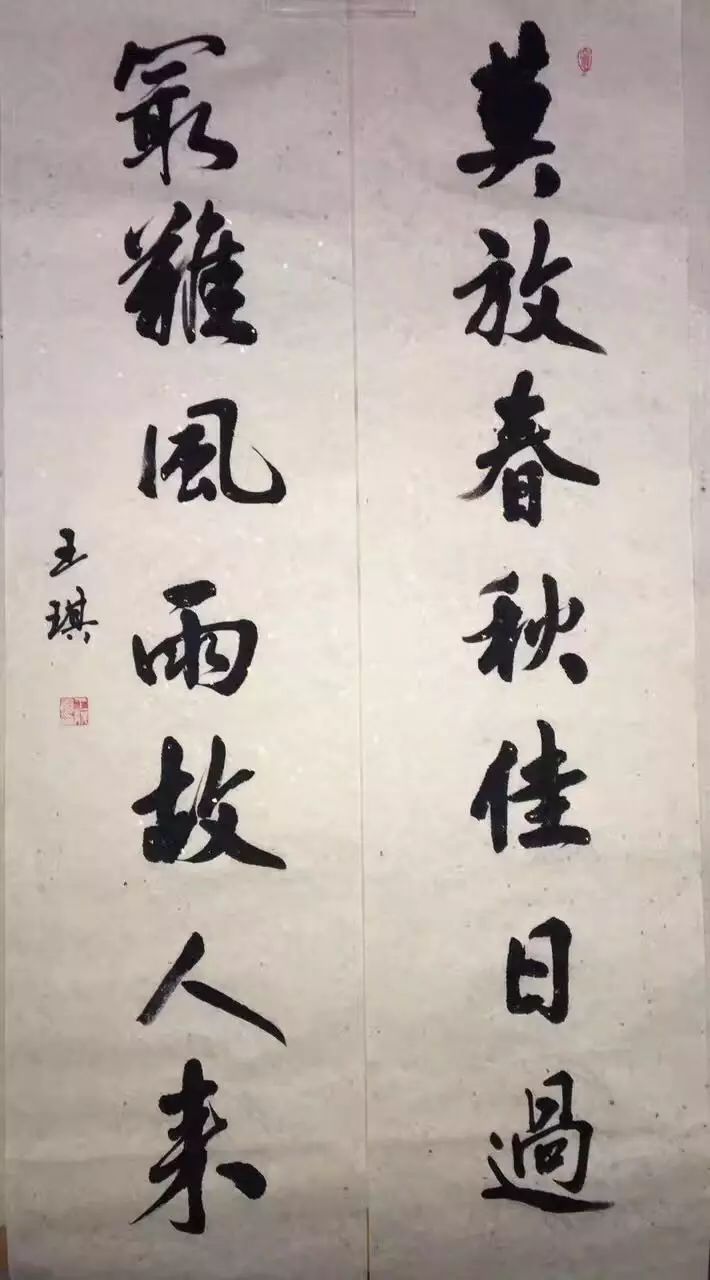 莫放春秋佳日過
最難風雨故人来
王琪